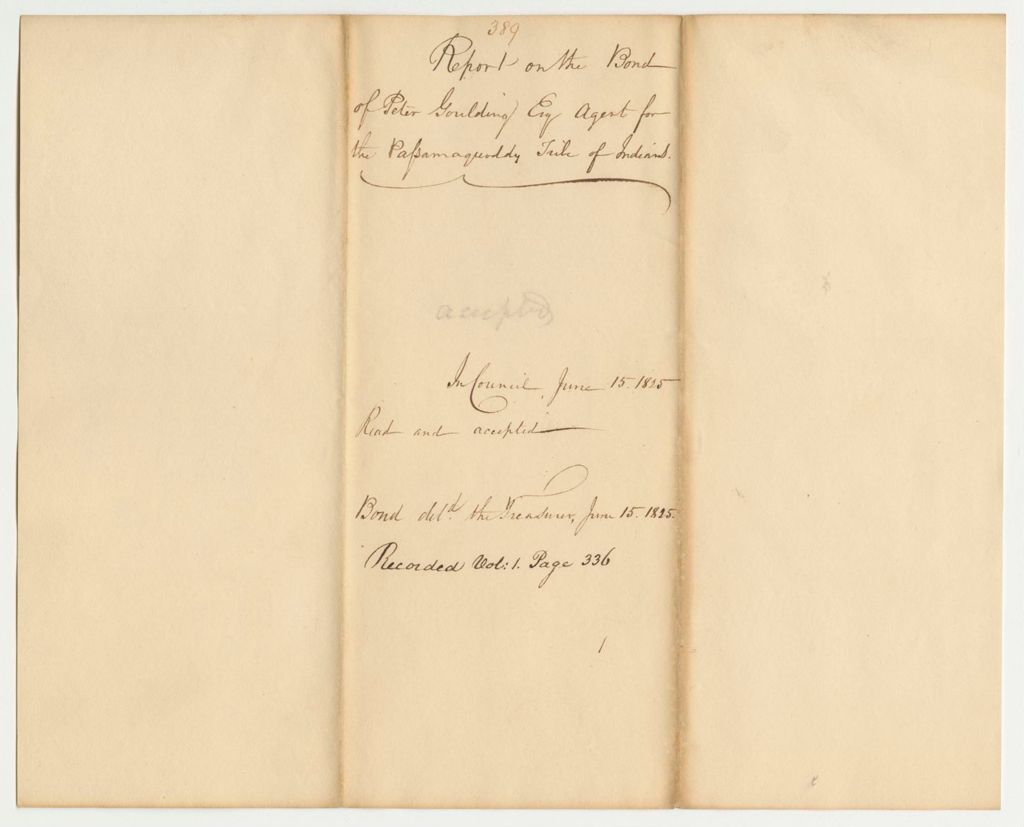 389
Report on the Bond
of Peter Goulding Esq Agent for
the Paſsamaquoddy Tribe of Indians.
accepted
In Council, June 15. 1825
Read and accepted
Bond deld. the Treasurer, June 15. 1825.
Recorded Vol: 1. Page 336
1